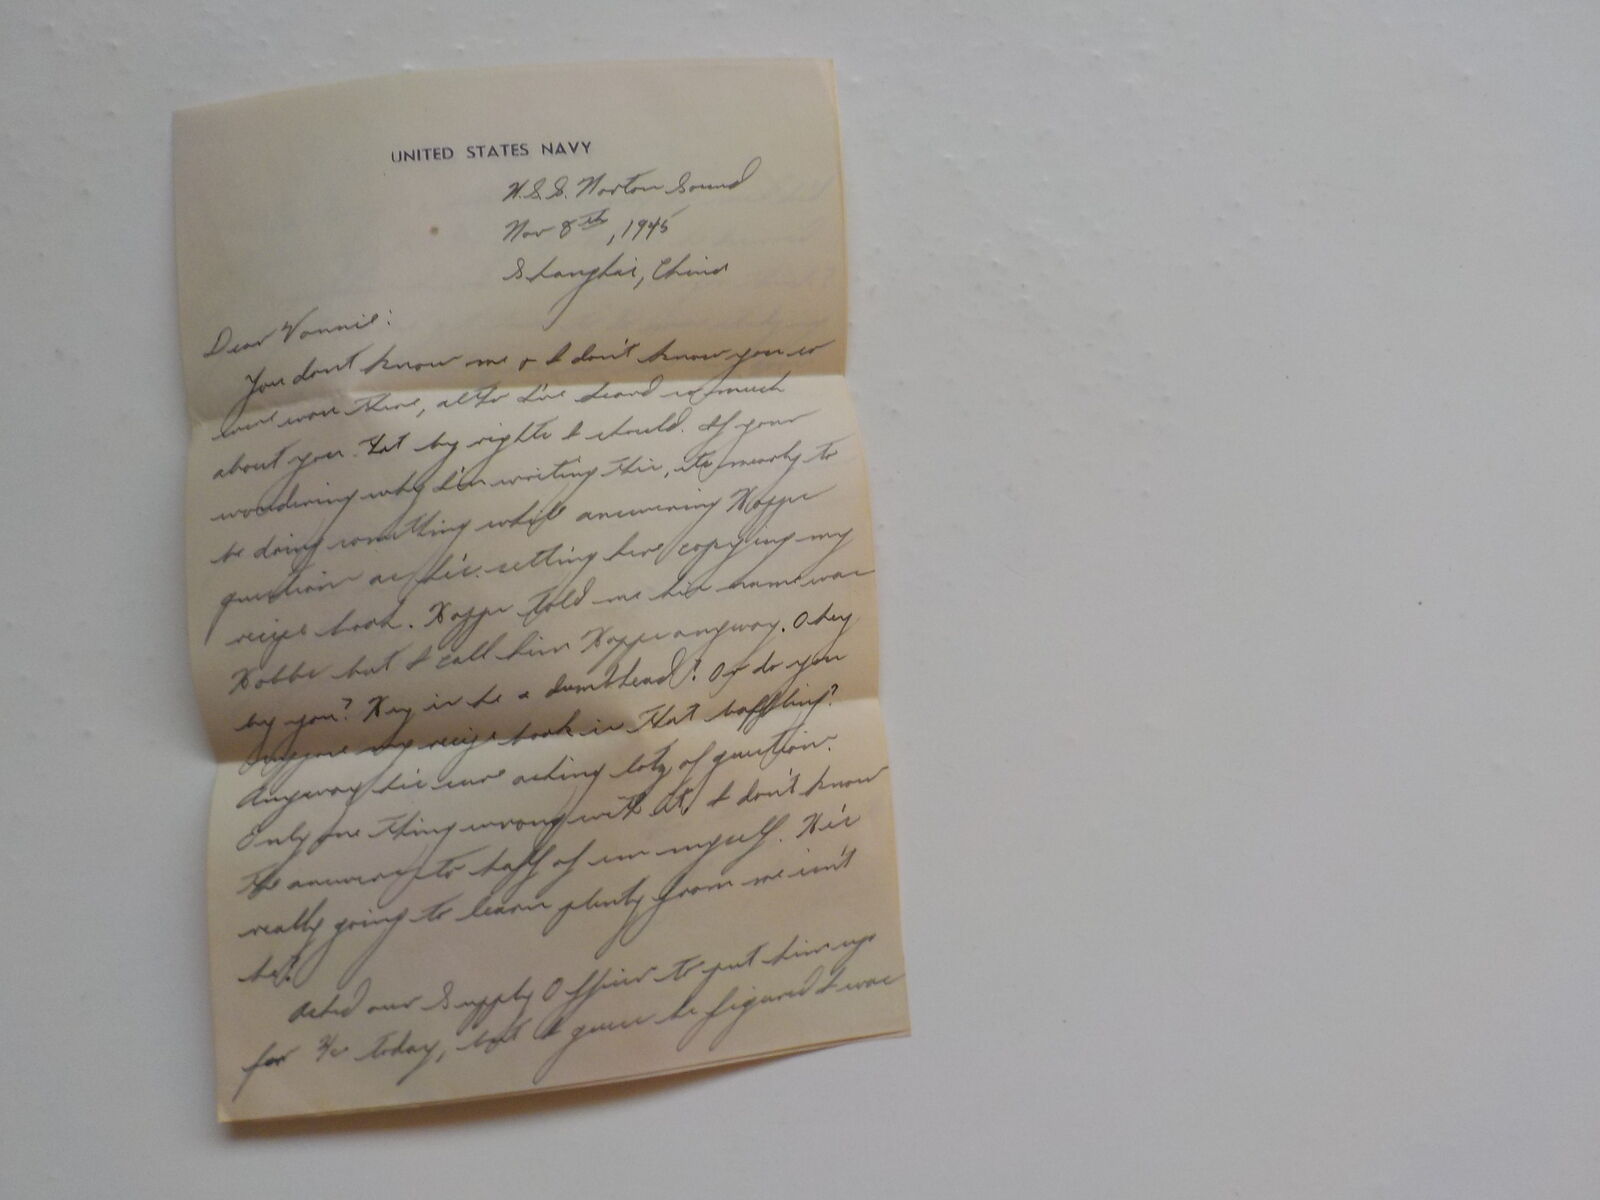 UNITED STATES NAVY
U.S.S. Norton Sound
Nov 8th, 1945
Shanghai, China
Dear Vonnie:
You don't know me & I don't know you so
we're even there, altho I've heard so much
about you. Yet by rights I should. If your
wondering why I'm writing this, its mearly to
be doing something while answering Hoppe
question as he's setting here copying my
recipe book. Hoppe told me his name was
Hobbe but I call him Hoppe anyway. Okey
by you? Hey is he a dumbhead? Or do you
suppose my recipe book is that baffling?
Anyway he's sure asking lotz of question.
Only one thing wrong with it, I don't know
the answers to half of em myself. He's
really going to learn plenty from me isn't
he?
Asked our Supply Officer to put him up
for 3/c today, but I guess he figured I was